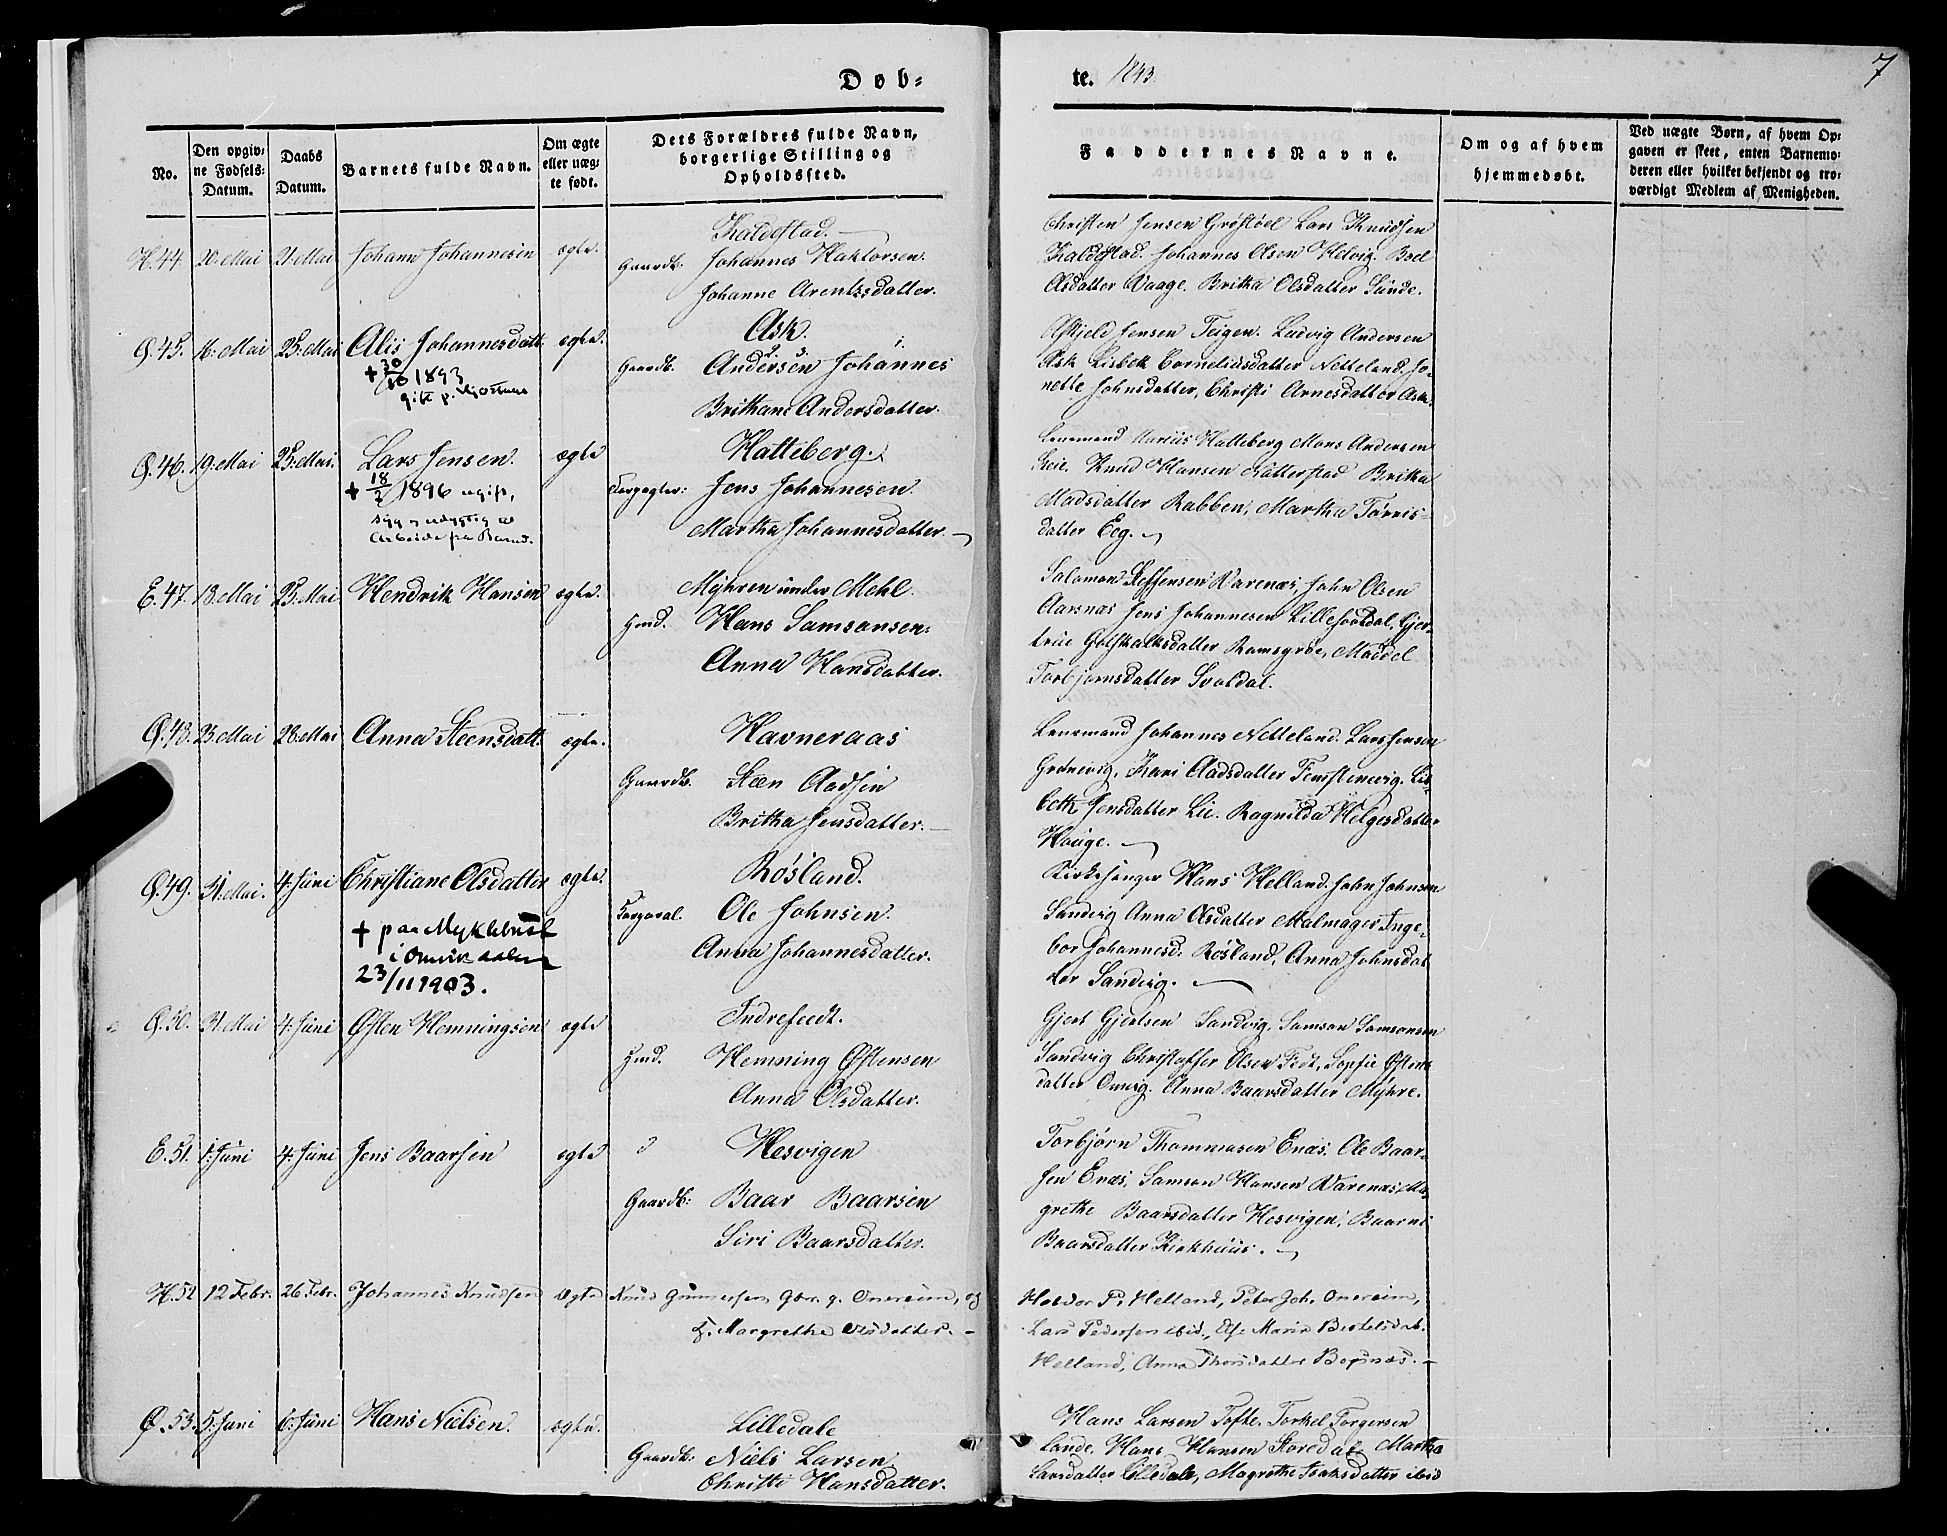 Døb=
te. 1843.
7
No.
Den opgiv=
ne Fødsels=
Datum.
Daabs
Datum.
Barnets fulde Navn.
Om ægte
eller uæg=
te født.
Dets Forældres fulde Navn,
borgerlige Stilling og
Opholdssted.
Faddernes Navne.
Om og af hvem
hjemmedøbt.
Ved uægte Børn, af hvem Op=
gaven er skeet, enten Barnemo=
deren eller hvilket bekjendt og tro=
værdigt Medlem af Menigheden.
H. 44. 20. Mai 21. Mai Johann Johannesen ægte.
Kaldestad.
Gaardb. Johannes Haktorsen.
Johanne Arentzdatter.
Christen Jensen Lars Knudsen
Kaldestad. Johannes Olsen Helvig. Boel
Olsdatter Vaage. Britha Olsdatter Sunde.
Ø. 45. 16. Mai 25. Mai Alis Johannesdatt. ægte.
+ 30/10 1893
gift p.
Ask.
Gaardb. Andersen Johannes
Brithane Andersdatter.
Jensen Teigen. Ludvig Andersen
Ask Lisbeth Corneliusdatter Netteland. Jo-
nette Johnsdatter, Christi Arnesdatter Ask.
Ø. 46. 19. Mai 25. Mai. Lars Jensen. ægte
+ 18/2 1896 ugift,
syg og udygtig til
Arbeide fra Barnd.
Hatteberg.
Forpagter: Jens Johannesen.
Martha Johannesdatter.
Lensmand Hatteberg Mons Andersen
Knud Hansen Nattersfad Britha
Madsdatter Rabben, Martha Tørris-
datter Eeg.
E. 47. 13. Mai 25. Mai Hendrik Hansen ægte.
Myhren under Mehl.
Hmd. Hans Samsonsen.
Anna Hansdatter.
Salamon Steffensen Varenæs, John Olsen
Aarsnæs Jens Johannesen Lillesvoldal, Gjer-
true Godskalksdatter Ramsgrøe, Maddel
Torbjørnsdatter Svaldal.
Ø. 48. 23. Mai 28. Mai Anna Steensdatt. ægte.
Havneraas
Gaardb. Steen Aadsen
Britha Jensdatter.
Lensmand Johannes Netteland. Lars Jensen
Grønevig, Kari Aadsdatter Femstenevig. Lis-
beth Jensdatter Lie. Ragnilda Helgesdatter
Houge.
Ø. 49. 31. Mai. 4. Juni Christiane Olsdatter ægte.
+ paa Myklebust
i Omvikdalen
23/11 1903.
Røsland.
Corporal. Ole Johnsen.
Anna Johannesdatter.
Kirkesanger Hans Helland. John Johnsen
Sandvig Anna Olsdatter Malmager Inge-
bor Johannesd. Røsland, Anna Johnsdat-
ter Sandvig.
Ø. 50. 31. Mai 4. Juni Østen Hemningsen ægte
Indrefeedt.
Hmd. Hemning Østensen
Anna Olsdatter.
Gjert Gjertsen Sandvig. Samson Samsonsen
Sandvig Christoffer Olsen Fedt. Sophie Østens
datter Omvig. Anna Baarsdatter Myhre.
E. 51. 1. Juni 4. Juni Jens Baarsen ægte
Hesvigen
Gaardb: Baar Baarsen
Siri Baarsdatter.
Torbjørn Thommasen Enæs. Ole Baar-
sen Enæs, Samson Hansen Varenæs, Ma-
grethe Baarsdatter Hesvigen, Baarni
Baarsdatter Kirkhuus.
H. 52 12 Febr. 26 Febr. Johannes Knudsen Ægte
Knud Gunnersen, Gbr. g. Onereim, og
H. Margrethe Olsdatter.
Haldor P. Helland, Peter Joh. Onereim,
Lars Pedersen ibid., Else Maria Bertelsdat.
Helland, Anna Thorsdatter Bogsnæs.
Ø. 53. 5. Juni 6. Juni Hans Nielsen. ægte.
Lilledale
Gaardb: Niels Larsen
Christi Hansdatter.
Hans Larsen Tofte. Torkel Torgersen
Lande. Hans Hansen Storedale Martha
Larsdatter Lilledale, Magrethe Isaksdatter ibid